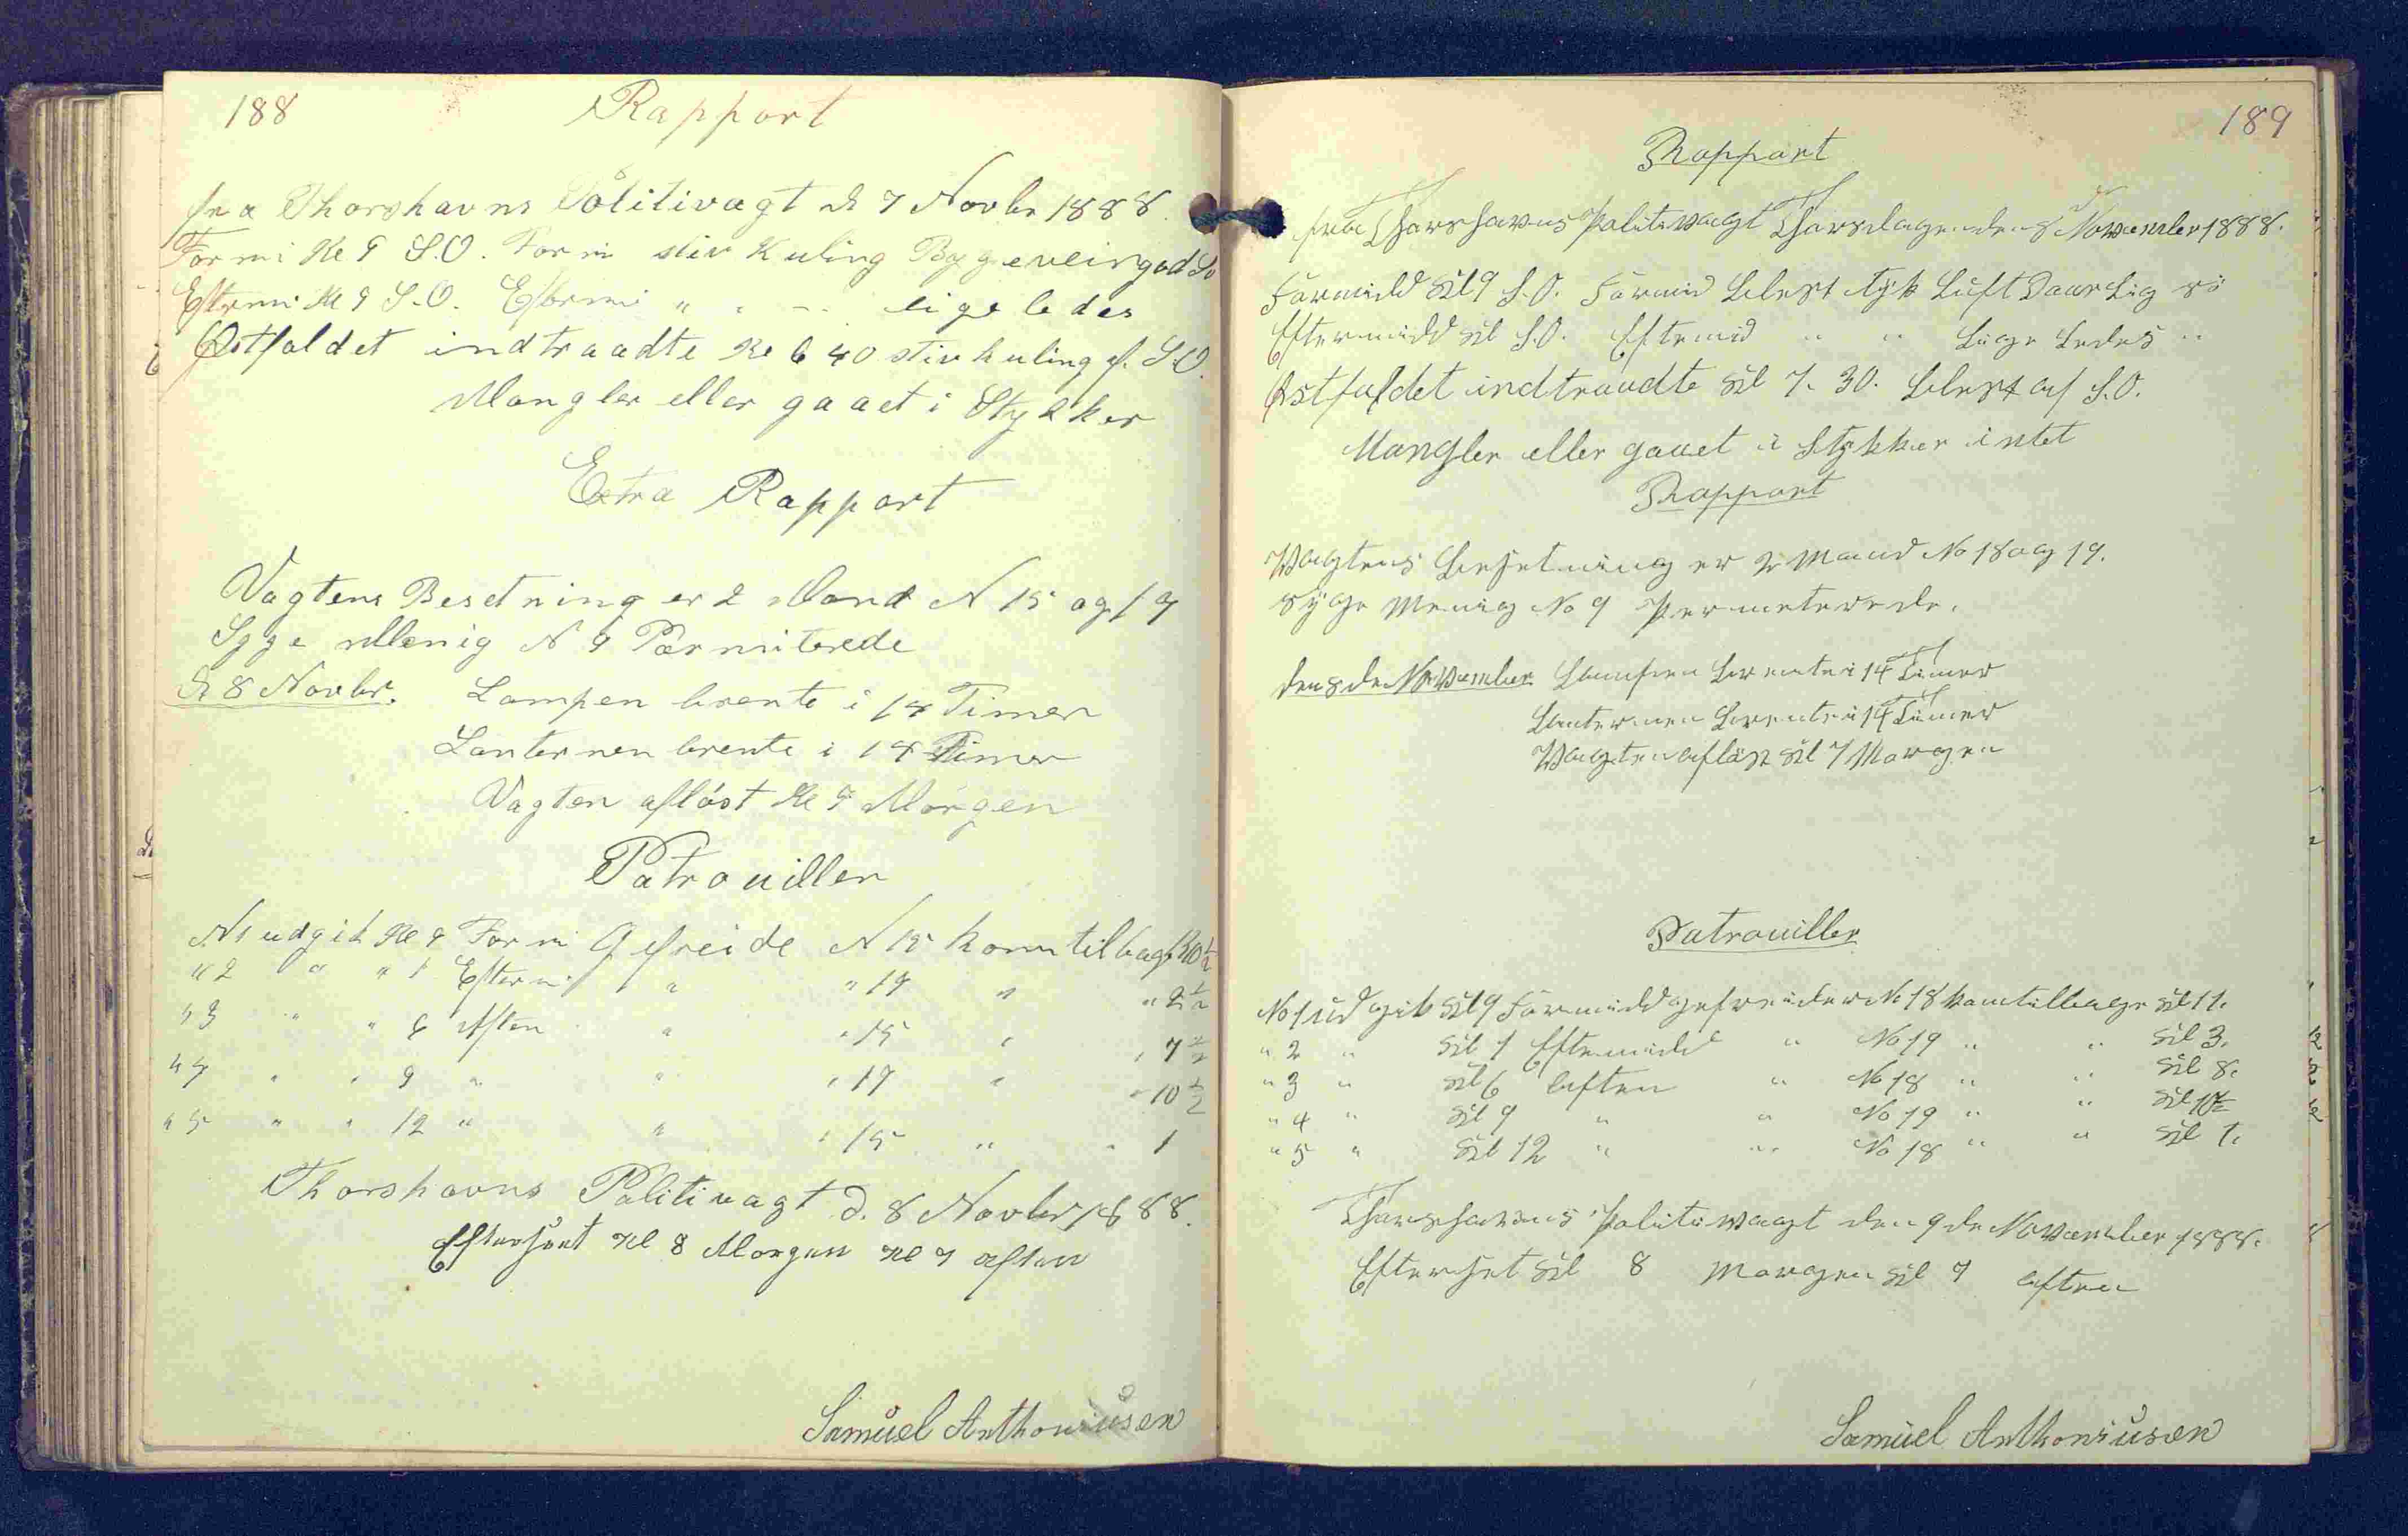 188
Rapport
fra Thorshavns Politivagt d 7 Novbr 1888.
Formi Kl 9 S.O. Formi stiv Kuling Byge veir god Sö
Efterm Kl 9 S.O. Efterm " " - lige ledes
Østfaldet indtraadte Kl 6 40 stiv kuling f. S.O.
Mangler eller gaaet i Stykker
Extra Rapport
Vagtens Besetning er 2 Mand N 15 og 17
Syge Menig N 9 Permiterede
D 8 Novbr. Lampen brente i 14 Timer
Lanternen brente i 14 Timer
Vagten afløst Kl 7 Morgen
Patrouiller
N 1 udgik Kl 9 Formi Gefreide N 15 kom tilbage
" 2 " " 1 Efterm " " 17 " " 2 1/2
" 3 " " 6 Aften " " 15 " " 7 1/2
" 4 " " 9 " " " 17 " " 10 1/2
" 5 " " 12 " " " 15 " " 1
Thorshavns Politivagt d. 8 Novbr 1888.
Efterseet Kl 8 Morgen Kl 7 Aften
Samuel Anthoniusen
189
Rapport
fra Thorshavns Politivagt Thorsdagen den 8 November 1888.
Formidd Kl 9 S.O. Formid blest tyk Luft Daarlig sö
Eftermidd Kl S.O. Eftemid " " Lige Ledes "
Østfaldet indtraadte Kl 7. 30. blest af S.O.
Mangler eller gaaet i Stykker intet
Rapport
Vagtens besetning er 2 Mand No 18 og 19.
syge Menig No 9 Permeterede.
den 8de November Lampen brente i 14 Timer
Lanternen brente i 14 Timer
Vagten afløst Kl 7 Morgen
Patrouiller
No 1 udgik Kl 9 Formidd gefreider No 18 kom tilbage Kl 11.
" 2 " Kl 1 Eftemidd " No 19 " " Kl 3.
" 3 " Kl 6 aften " No 18 " " Kl 8.
" 4 " Kl 9 " " No 19 " " Kl 10 1/2
" 5 " Kl 12 " " No 18 " " Kl 1.
Thorshavns Politivagt den 9de November 1888.
Efterset Kl 8 Morgen Kl 7 aften
Samuel Anthoniusen